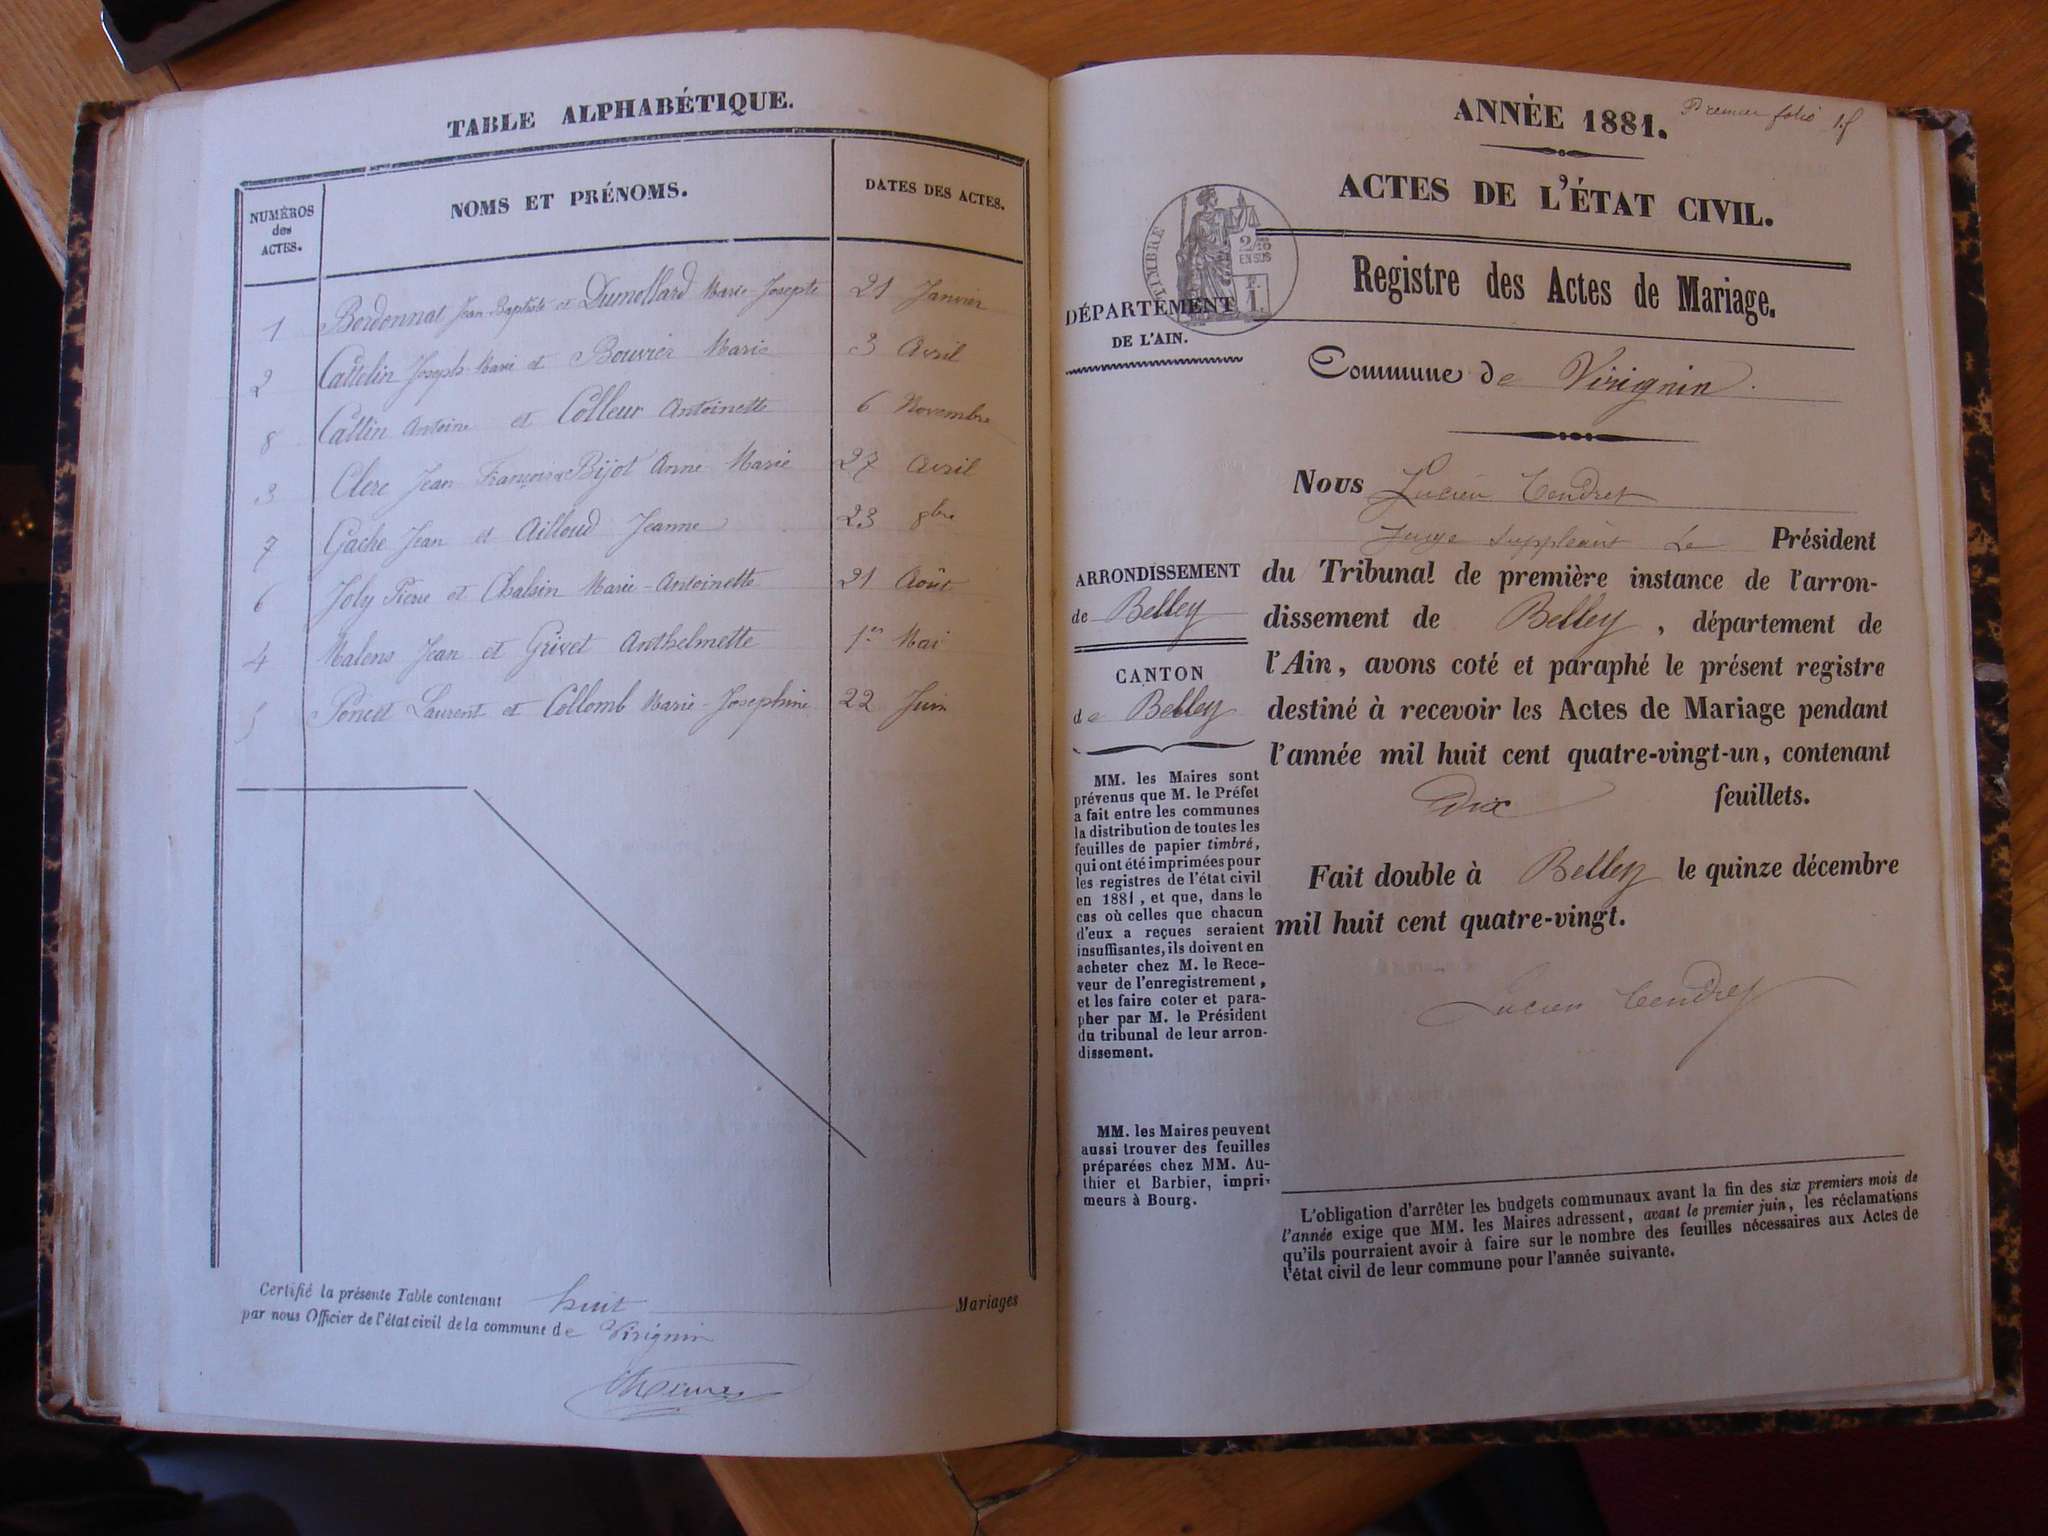 TABLE ALPHABÉTIQUE.
NUMÉROS des ACTES.
NOMS ET PRÉNOMS.
DATES DES ACTES.
1 Bordonnat Jean-Baptiste et Dumollard Marie-Josepte 21 Janvier
2 Cattelin Joseph-Marie et Bouvier Marie 3 Avril
8 Cattin Antoine et Colleur Antoinette 6 Novembre
3 Clerc Jean François & Bijot Anne-Marie 27 Avril
7 Gache Jean et Ailloud Jeanne 23 8bre
6 Joly Pierre et Chalsin Marie-Antoinette 21 Août
4 Malens Jean et Grivet Anthelmette 1er Mai
5 Poncet Laurent et Collomb Marie-Josephine 22 Juin
Certifié la présente Table contenant huit Mariages
par nous Officier de l'état civil de la commune de Virignin
Premier folio
ANNÉE 1881.
ACTES DE L'ÉTAT CIVIL.
TIMBRE
2/10
EN SUS
F.
1.
Registre des Actes de Mariage.
DÉPARTEMENT
DE L'AIN.
Commune de Virignin.
Nous Lucien Tendret
Juge suppléant Le Président
du Tribunal de première instance de l'arron-
dissement de Belley, département de
l'Ain, avons coté et paraphé le présent registre
destiné à recevoir les Actes de Mariage pendant
l'année mil huit cent quatre-vingt-un, contenant
Dix feuillets.
Fait double à Belley le quinze décembre
mil huit cent quatre-vingt.
Lucien Tendret
ARRONDISSEMENT
de Belley
CANTON
de Belley
MM. les Maires sont
prévenus que M. le Préfet
a fait entre les communes
la distribution de toutes les
feuilles de papier timbré,
qui ont été imprimées pour
les registres de l'état civil
en 1881, et que, dans le
cas où celles que chacun
d'eux a reçues seraient
insuffisantes, ils doivent en
acheter chez M. le Rece-
veur de l'enregistrement,
et les faire coter et para-
pher par M. le Président
du tribunal de leur arron-
dissement.
MM. les Maires peuvent
aussi trouver des feuilles
préparées chez MM. Au-
thier et Barbier, impri-
meurs à Bourg.
L'obligation d'arrêter les budgets communaux avant la fin des six premiers mois de
l'année exige que MM. les Maires adressent, avant le premier juin, les réclamations
qu'ils pourraient avoir à faire sur le nombre des feuilles nécessaires aux Actes de
l'état civil de leur commune pour l'année suivante.